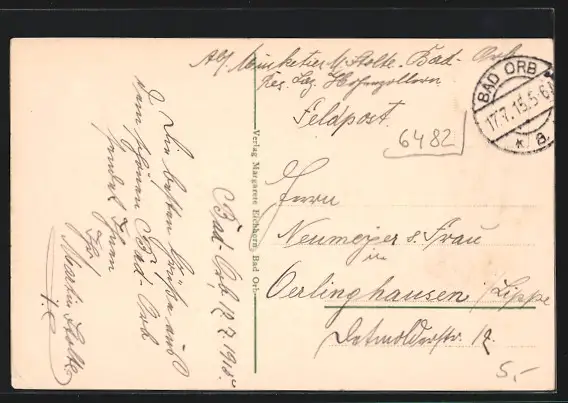 Abs. Musketier M. Stolte. Bad-Orb
Res. Laz. Hohenzollern
Feldpost.
6482
BAD ORB
17.7.15.5-6
* a.
Die besten Grüße aus
dem schönen Bad-Orb
sendet Ihnen
Ihr
Martin Stolte
Bad-Orb, 17.7.1915.
Verlag Margarete Eichhorn, Bad Orb.
Herrn
Neumeyer u. Frau
in
Oerlinghausen /Lippe
Detmolderstr. 12.
5,-